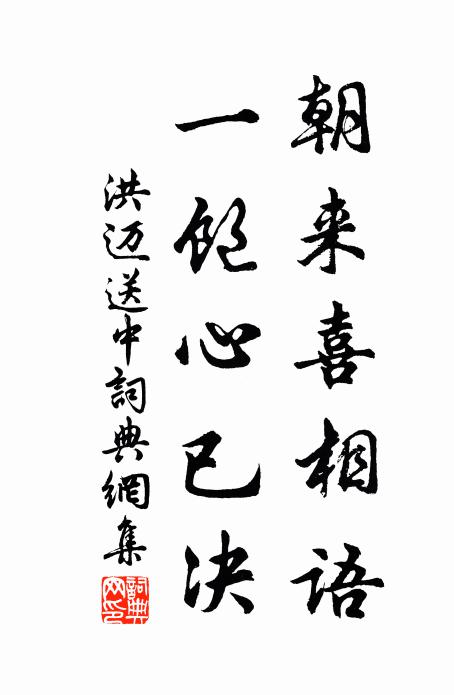 朝来喜相語
一飽心已决
洪迈送中詞典網集
詞典网印